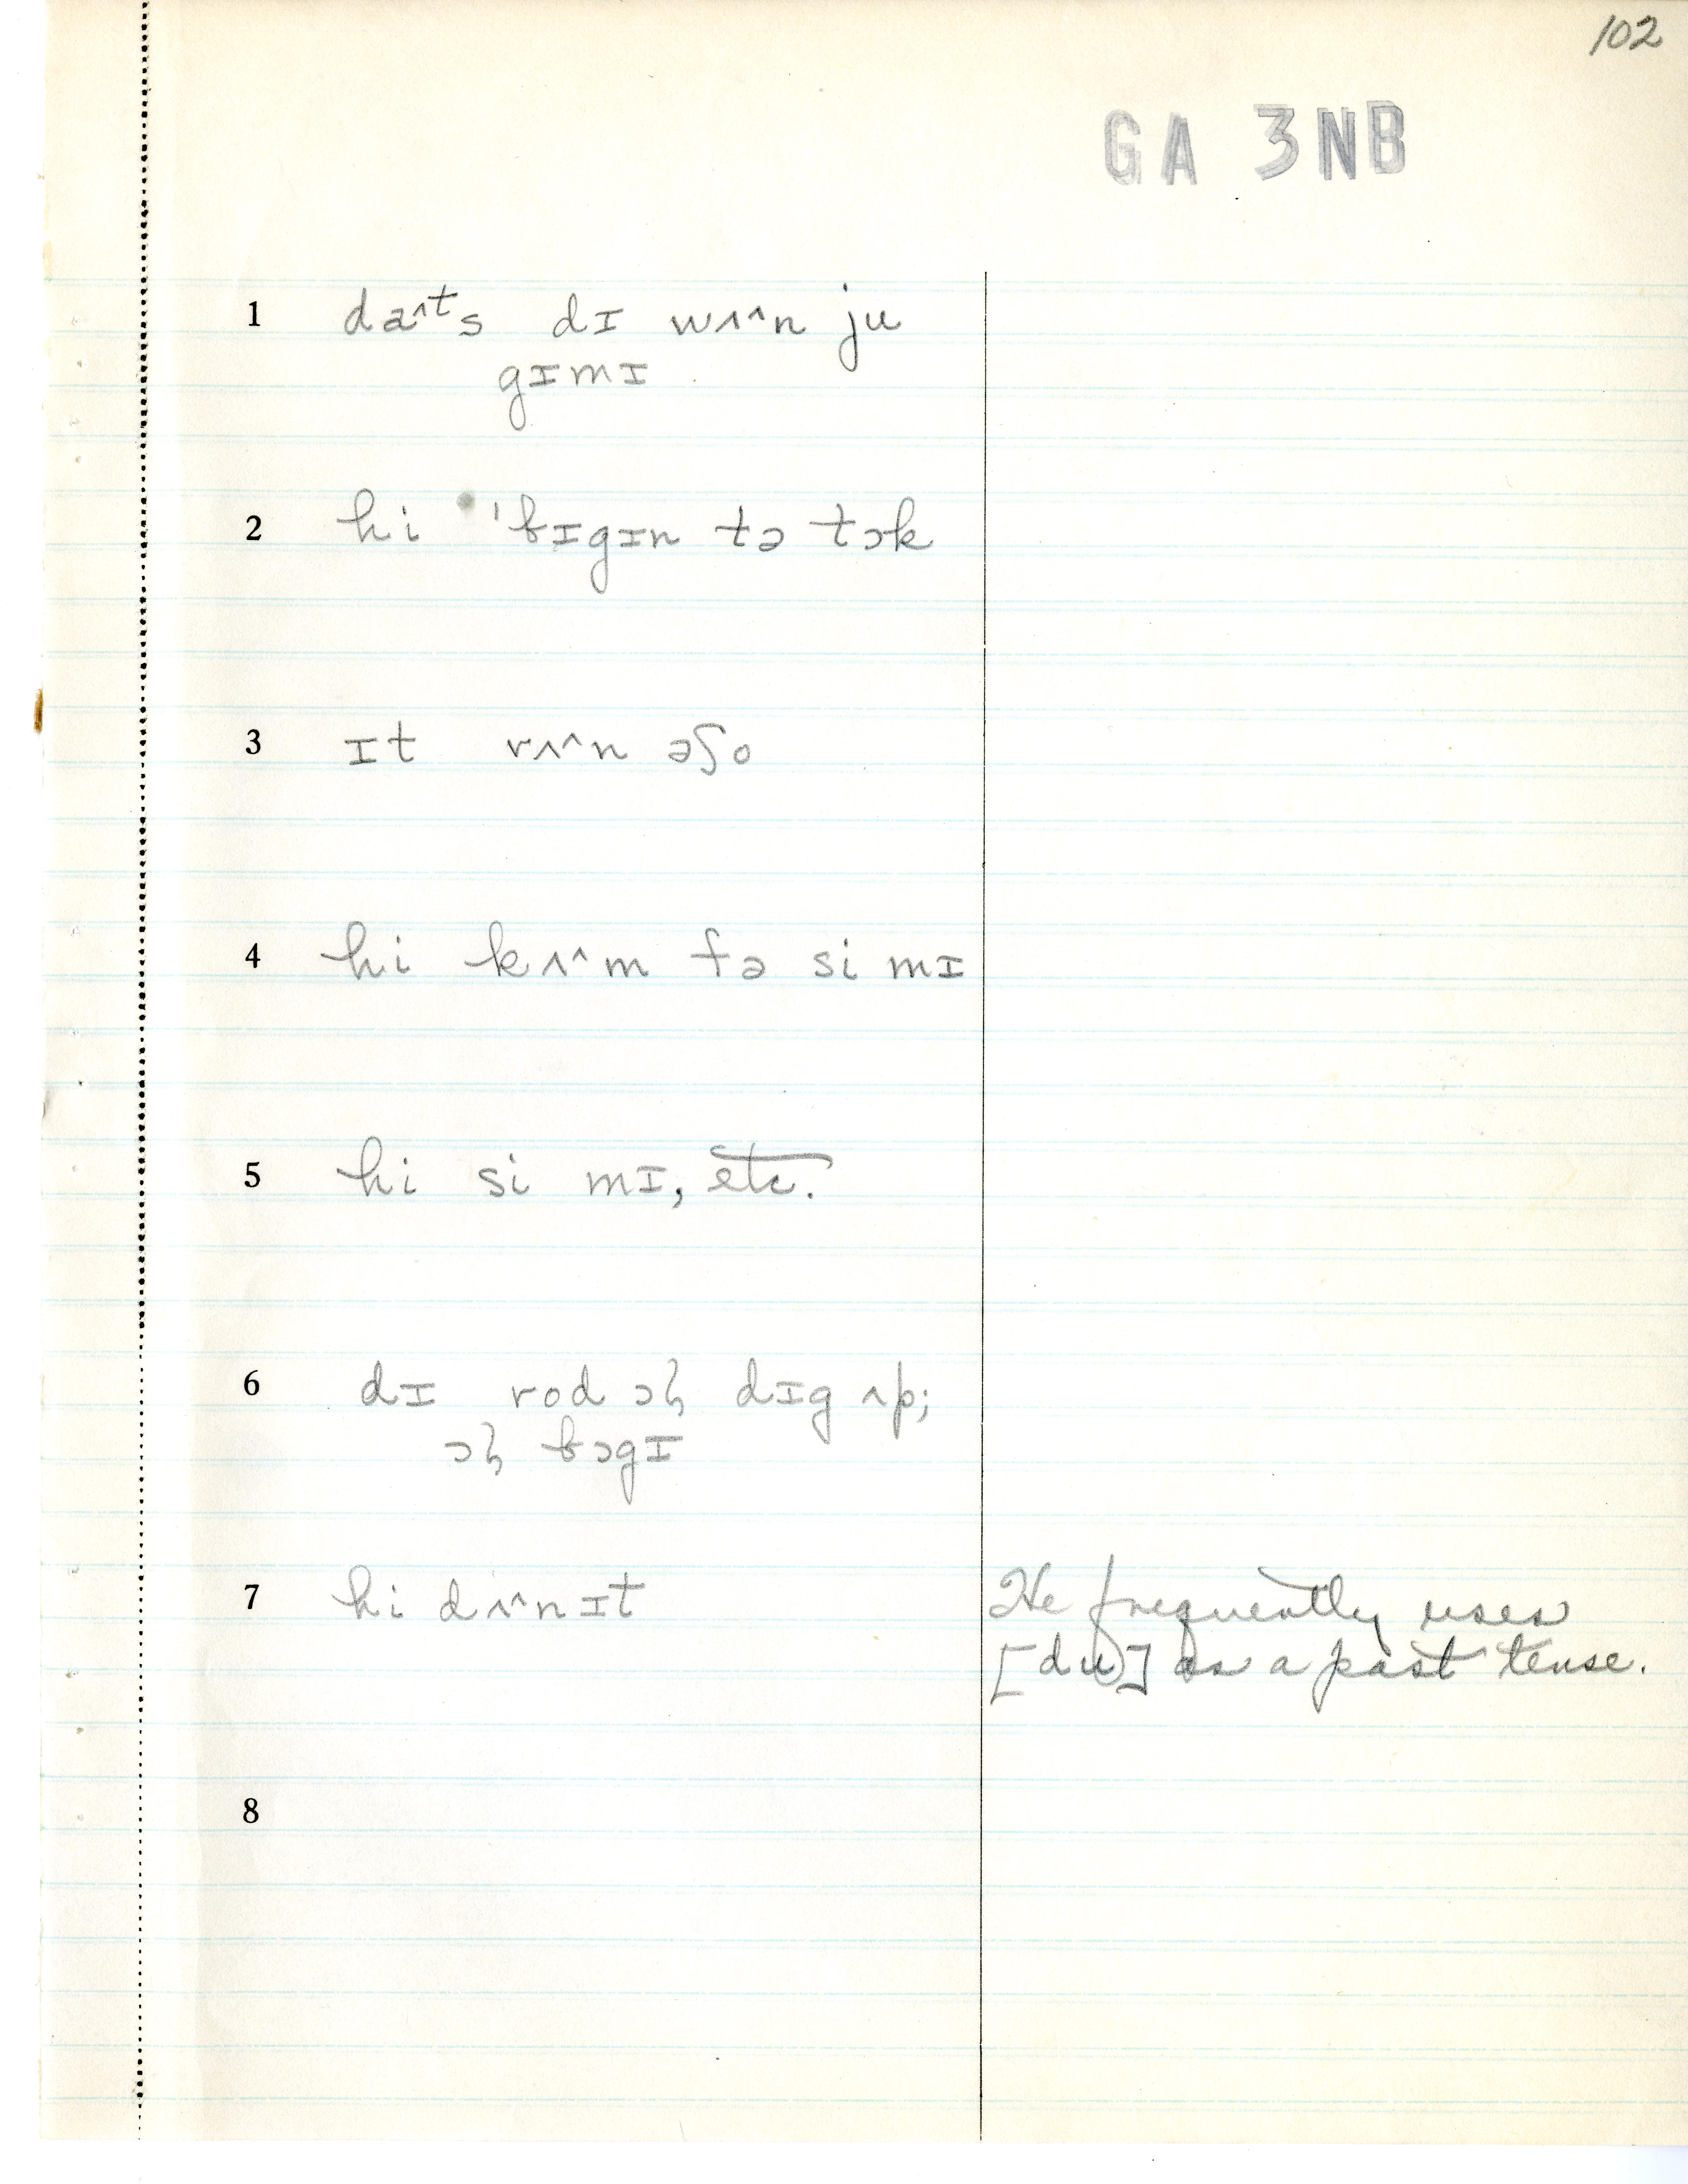 102
GA 3NB
1 da^ts dɪ wʌ^n ju
gɪmɪ
2 hi 'bɪgɪn tə tɔk
3 ɪt rʌ^n əʃo
4 hi kʌ^m fə si mɪ
5 hi si mɪ, etc.
6 dɪ rod ɔɫ dɪg ʌp;
ɔɫ bɔgɪ
7 hi dʌ^nɪt He frequently uses
[du] as a past tense.
8